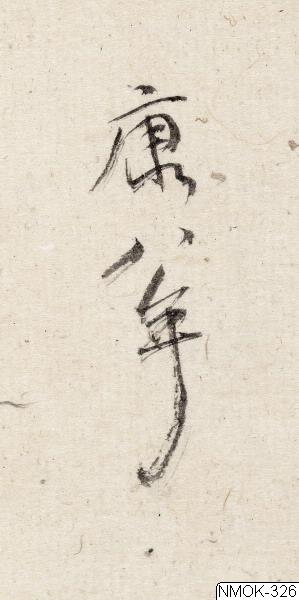 康八年
NMOK-326